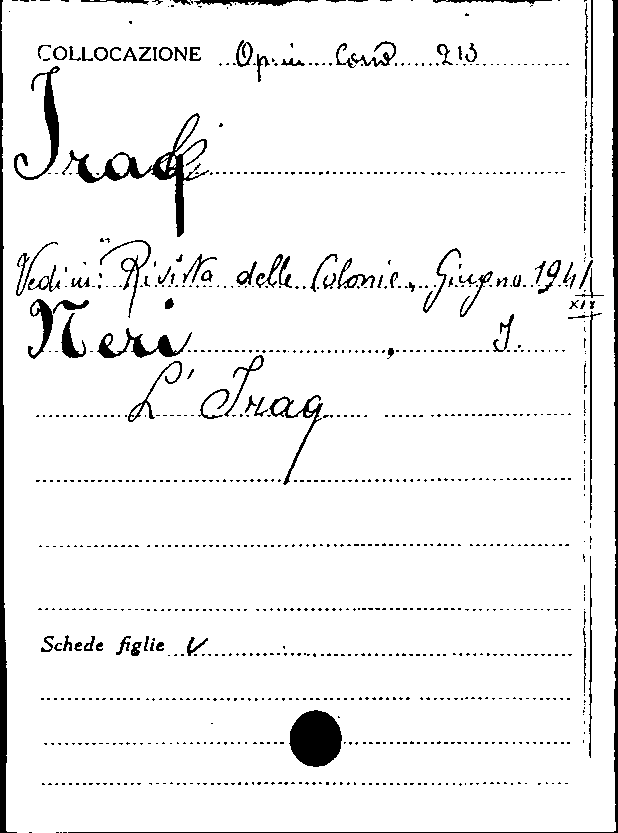 COLLOCAZIONE Op. in Cons 213
Iraq
Vedi in: "Rivista delle Colonie„ Giugno 1941
XIX
Neri, I.
L' Iraq
Schede figlie V